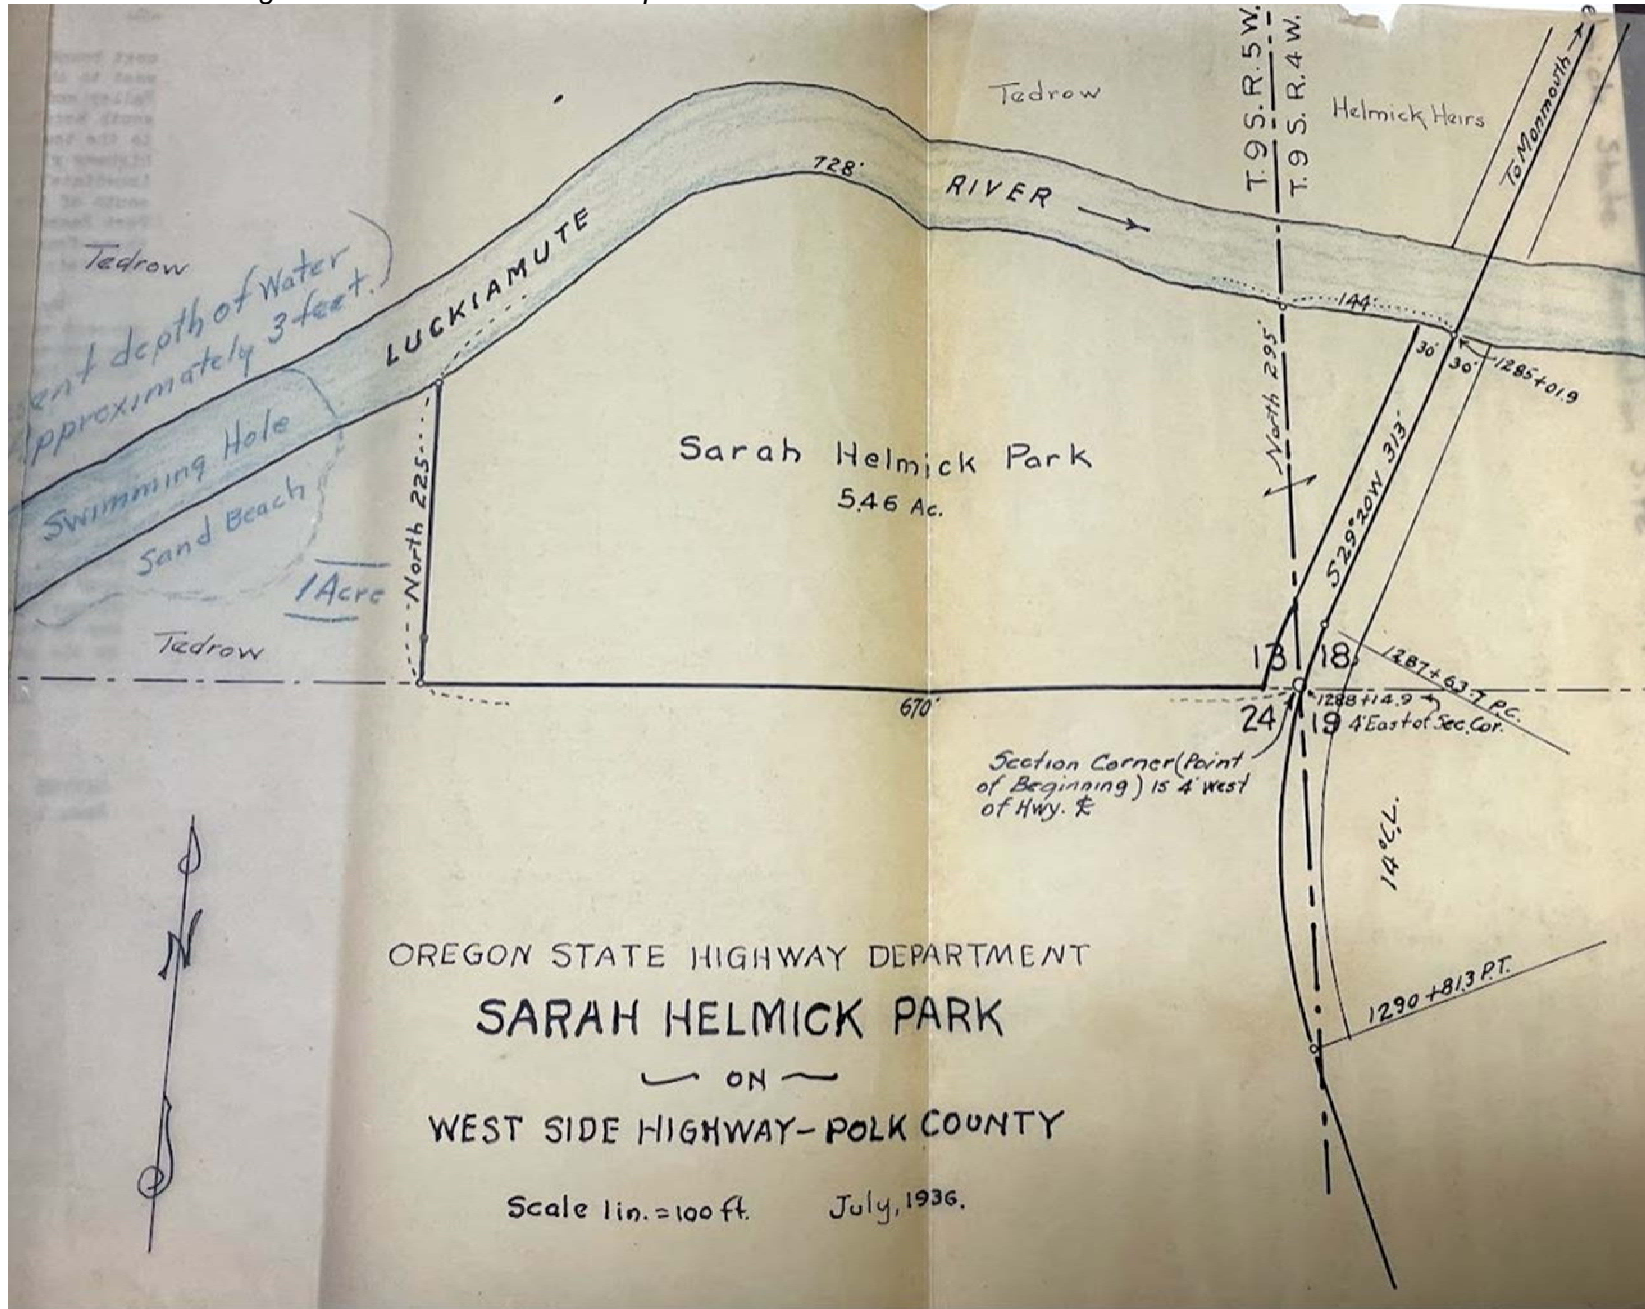 T. 9 S. R. 5 W.
T. 9 S. R. 4 W.
Tedrow
Helmick Heirs
To Monmouth
728'
RIVER
LUCKIAMUTE
Tedrow
depth of Water
approximately 3 feet.
Swimming Hole
Sand Beach
1 Acre
Tedrow
North 225
Sarah Helmick Park
5.46 Ac.
North 295'
144'
30'
30'
1285+01.9
S29°20W 313'
13
18
24
19
1287+63.7 P.C.
1288+14.9
4' East of Sec. Cor.
670'
Section Corner (Point
of Beginning) is 4' West
of Hwy. ℄
14° C.L.
1290+81.3 P.T.
N
OREGON STATE HIGHWAY DEPARTMENT
SARAH HELMICK PARK
ON
WEST SIDE HIGHWAY-POLK COUNTY
Scale 1in.=100 ft. July, 1936.